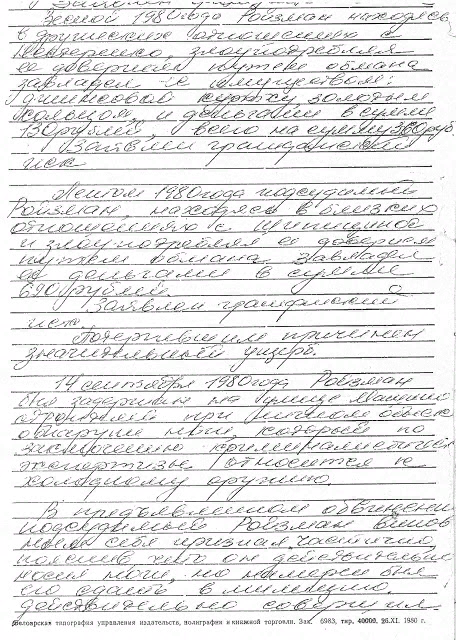 Заявлен гражданский
Весной 1980 года Ройзман находясь
в дружеских отношениях с
злоупотребляя
ее доверием путем обмана
завладел ее имуществом:
джинсовой курткой, золотым
кольцом, и деньгами в сумме
130 рублей, всего на сумму 360 руб
Заявлен гражданский
иск
Летом 1980 года подсудимый
Ройзман, находясь в близких
отношениях с
и злоупотребляя ее доверием
путем обмана завладел
ее деньгами в сумме
690 рублей.
Заявлен гражданский
иск.
Потерпевшим причинен
значительный ущерб.
14 сентября 1980 года Ройзман
был задержан на улице Машино
строителей при личном обыске
обнаружен нож, который по
заключению криминалистическ
экспертизы относится к
холодному оружию.
В предъявленном обвинении
подсудимый Ройзман винов
ным себя признал частично
пояснив что он действительно
носил нож, но намерен был
его сдать в милицию.
действительно совершил
типография управления издательств, полиграфии и книжной торговли. Зак. 6983, тир. 40000. 26.XI. 1980 г.